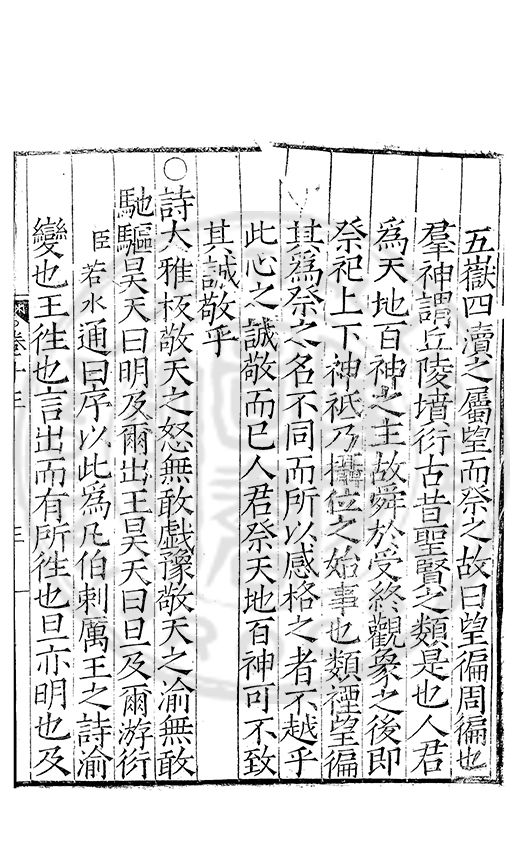 五嶽四瀆之屬望而祭之故曰望徧周徧也
羣神謂丘陵墳衍古昔聖賢之類是也人君
為天地百神之主故舜於受終觀象之後即
祭祀上下神祇乃攝位之始事也類禋望徧
其為祭之名不同而所以感格之者不越乎
此心之誠敬而已人君祭天地百神可不致
其誠敬乎
○詩大雅板敬天之怒無敢戲豫敬天之渝無敢
馳驅昊天曰明及爾出王昊天曰旦及爾游衍
臣若水通曰序以此為凡伯刺厲王之詩渝
變也王徃也言出而有所徃也旦亦明也及